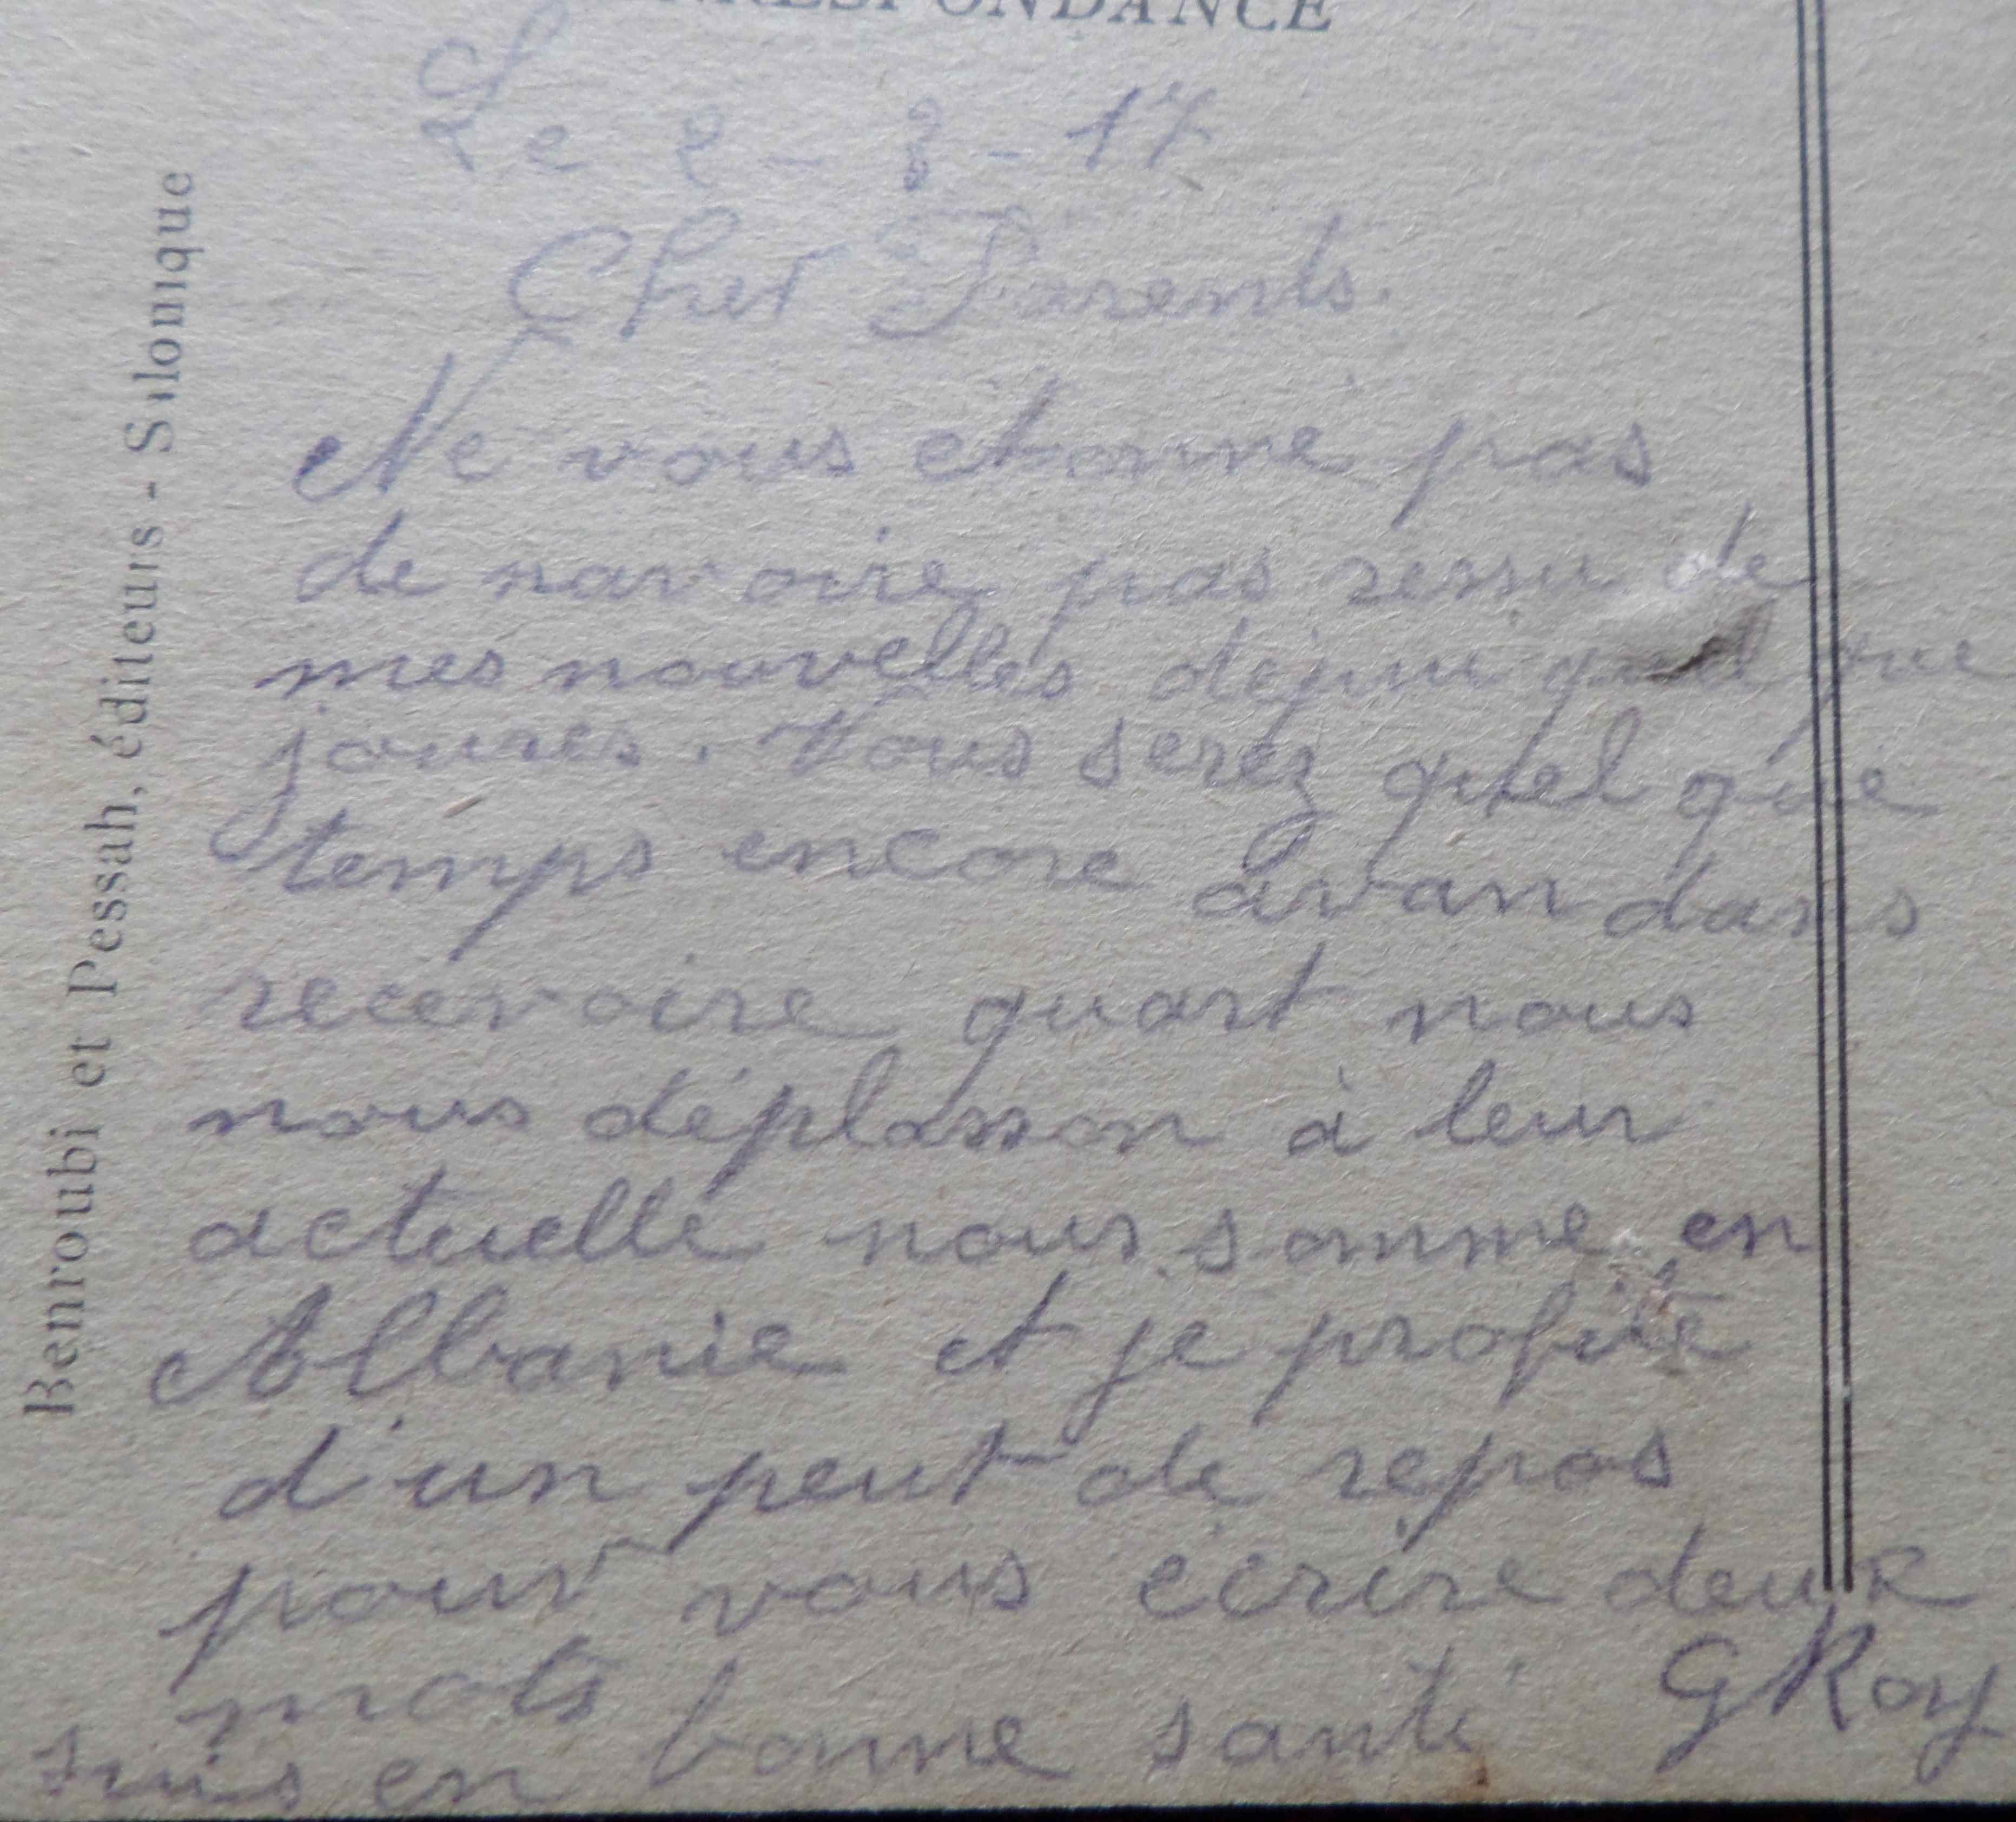 CORRESPONDANCE
Le 2 - 8 - 17
Cher Parents.
Ne vous etonne pas
de navoire pas ressu de
mes nouvelles depui quel que
joures. Vous serez quel que
temps encore avan dans
recevoire quant nous
nous déplasson à leur
actuelle nous somme en
Albanie et je profite
d'un peut de repos
pour vous ecrire deux
mots
suis en bonne santé GRoy
Benroubi et Pessah, éditeurs - Salonique